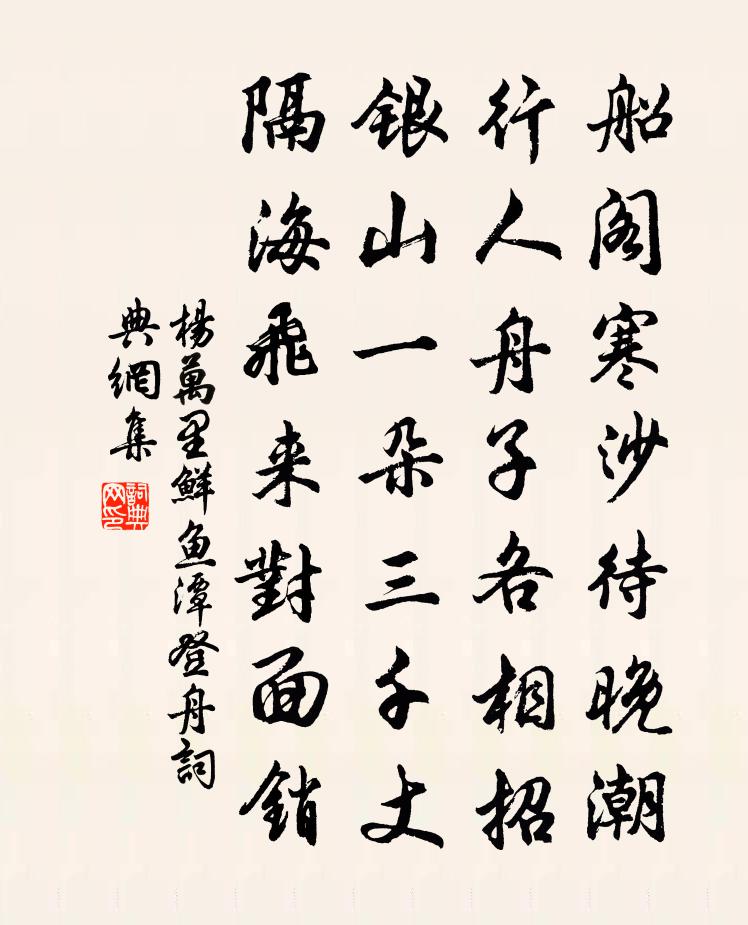 船阁寒沙待晚潮
行人舟子各相招
银山一朵三千丈
隔海飞来對面销
楊萬里鮮魚潭登舟詞
典網集
詞典
网印